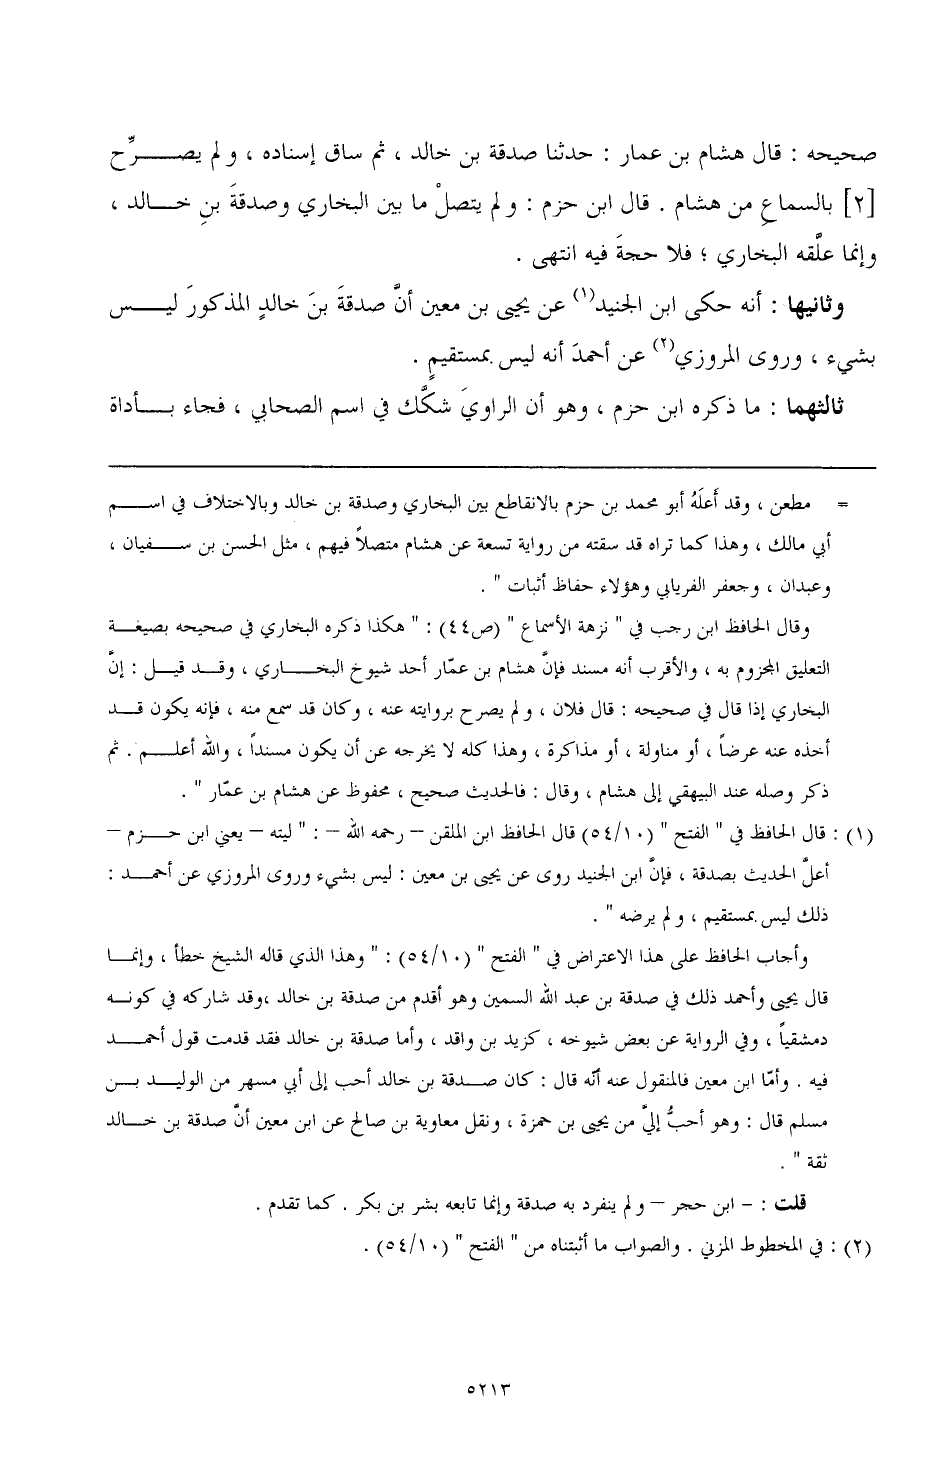 صحيحه : قال هشام بن عمار : حدثنا صدقة بن خالد ، ثم ساق إسناده ، ولم يصــــرِّح
[٢] بالسماعِ من هشام . قال ابن حزم : ولم يتصلْ ما بين البخاري وصدقةَ بنِ خـــالد ،
وإنما علَّقه البخاري ؛ فلا حجةَ فيه انتهى .
وثانيها : أنه حكى ابن الجنيد(١) عن يحيى بن معين أنَّ صدقةَ بنَ خالدٍ المذكورَ ليـــس
بشيء ، وروى المروزي(٢) عن أحمدَ أنه ليس بمستقيمٍ .
ثالثهما : ما ذكره ابن حزم ، وهو أن الراويَ شكَّك في اسم الصحابي ، فجاء بـــأداة
= مطعن ، وقد أَعلَهُ أبو محمد بن حزم بالانقطاع بين البخاري وصدقة بن خالد وبالاختلاف في اســـم
أبي مالك ، وهذا كما تراه قد سقته من رواية تسعة عن هشام متصلاً فيهم ، مثل الحسن بن ســفيان ،
وعبدان ، وجعفر الفريابي وهؤلاء حفاظ أثبات " .
وقال الحافظ ابن رجب في " نزهة الأسماع " (ص٤٤) : " هكذا ذكره البخاري في صحيحه بصيغـــة
التعليق المجزوم به ، والأقرب أنه مسند فإنَّ هشام بن عمّار أحد شيوخ البخـــاري ، وقـــد قيـــل : إنَّ
البخاري إذا قال في صحيحه : قال فلان ، ولم يصرح بروايته عنه ، وكان قد سمع منه ، فإنه يكون قـــد
أخذه عنه عرضاً ، أو مناولة ، أو مذاكرة ، وهذا كله لا يخرجه عن أن يكون مسنداً ، والله أعلـــم . ثم
ذكر وصله عند البيهقي إلى هشام ، وقال : فالحديث صحيح ، محفوظ عن هشام بن عمّار " .
(١) : قال الحافظ في " الفتح " (٥٤/١٠) قال الحافظ ابن الملقن – رحمه الله – : " ليته – يعني ابن حـــزم –
أعلَّ الحديث بصدقة ، فإنَّ ابن الجنيد روى عن يحيى بن معين : ليس بشيء وروى المروزي عن أحمـــد :
ذلك ليس بمستقيم ، ولم يرضه " .
وأجاب الحافظ على هذا الاعتراض في " الفتح " (٥٤/١٠) : " وهذا الذي قاله الشيخ خطأ ، وإنمـــا
قال يحيى وأحمد ذلك في صدقة بن عبد الله السمين وهو أقدم من صدقة بن خالد ،وقد شاركه في كونـــه
دمشقياً ، وفي الرواية عن بعض شيوخه ، كزيد بن واقد ، وأما صدقة بن خالد فقد قدمت قول أحمـــد
فيه . وأمّا ابن معين فالمنقول عنه أنّه قال : كان صـــدقة بن خالد أحب إلى أبي مسهر من الوليـــد بـــن
مسلم قال : وهو أحبُّ إليَّ من يحيى بن حمزة ، ونقل معاوية بن صالح عن ابن معين أنَّ صدقة بن خـــالد
ثقة " .
قلت : - ابن حجر – ولم ينفرد به صدقة وإنما تابعه بشر بن بكر . كما تقدم .
(٢) : في المخطوط المزني . والصواب ما أثبتناه من " الفتح " (٥٤/١٠) .
٥٢١٣